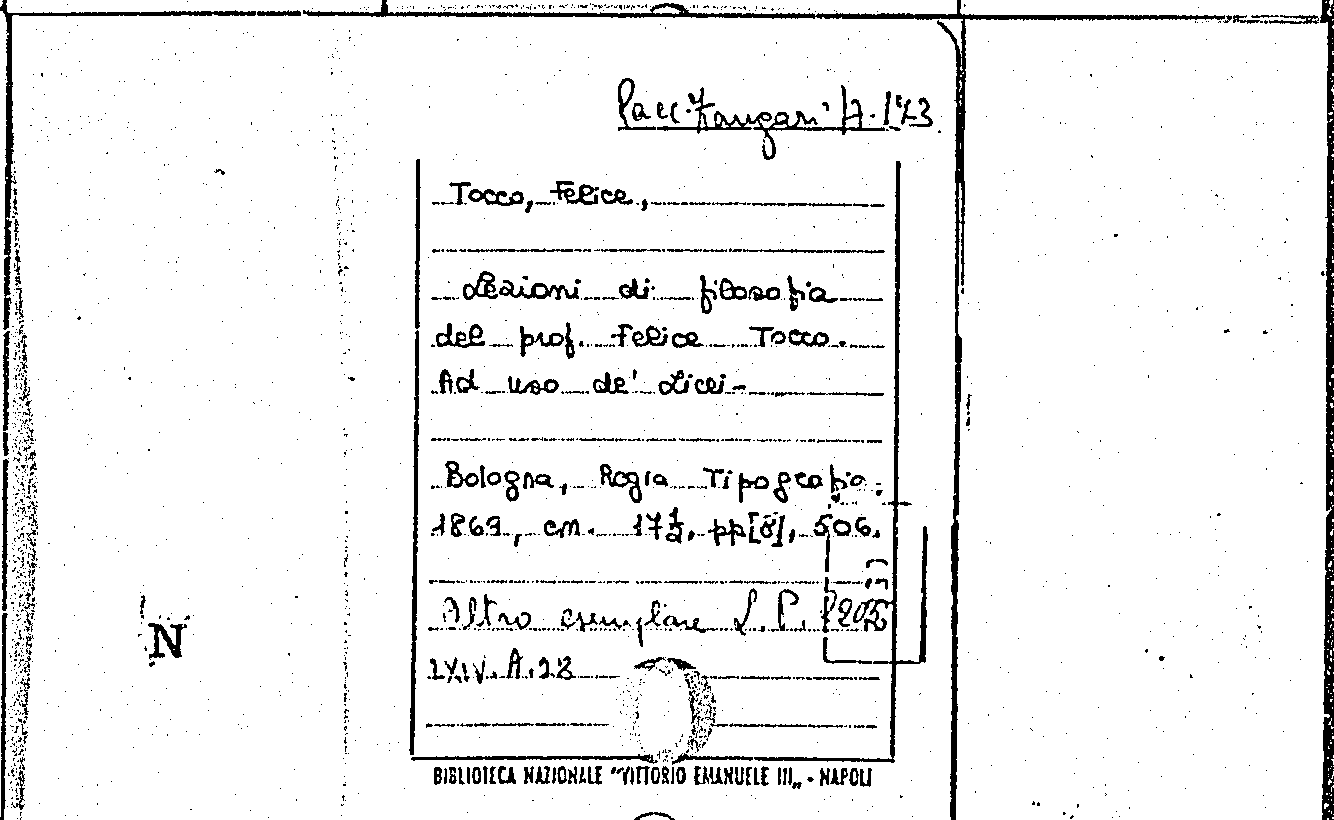 Racc. Zangari A. 123
Tocco, Felice,
Lezioni di filosofia
del prof. Felice Tocco.
Ad uso de' Licei-
Bologna, Regia Tipografia.
1869, cm. 17½, pp[8], 506.
Altro esemplare L. P.
LXIV. A. 28
N
BIBLIOTECA NAZIONALE "VITTORIO EMANUELE III„ - NAPOLI